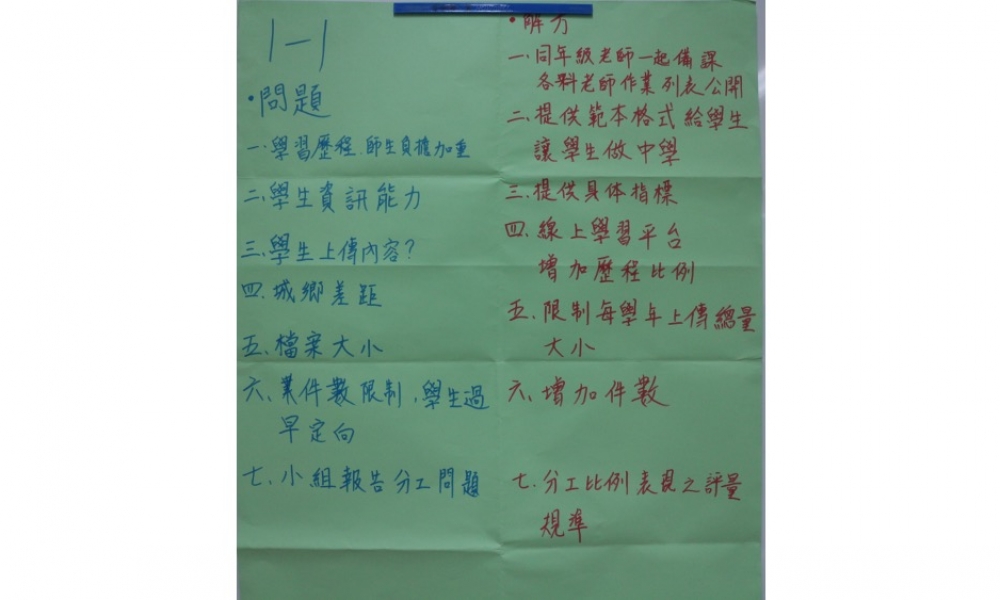 1-1
•問題
一、學習歷程、師生負擔加重
二、學生資訊能力
三、學生上傳內容?
四、城鄉差距
五、檔案大小
六、業件數限制，學生過
早定向
七、小組報告分工問題
•解方
一、同年級老師一起備課
各科老師作業列表公開
二、提供範本格式給學生
讓學生做中學
三、提供具体指標
四、線上學習平台
增加歷程比例
五、限制每學年上傳總量
大小
六、增加件數
七、分工比例表現之評量
規準